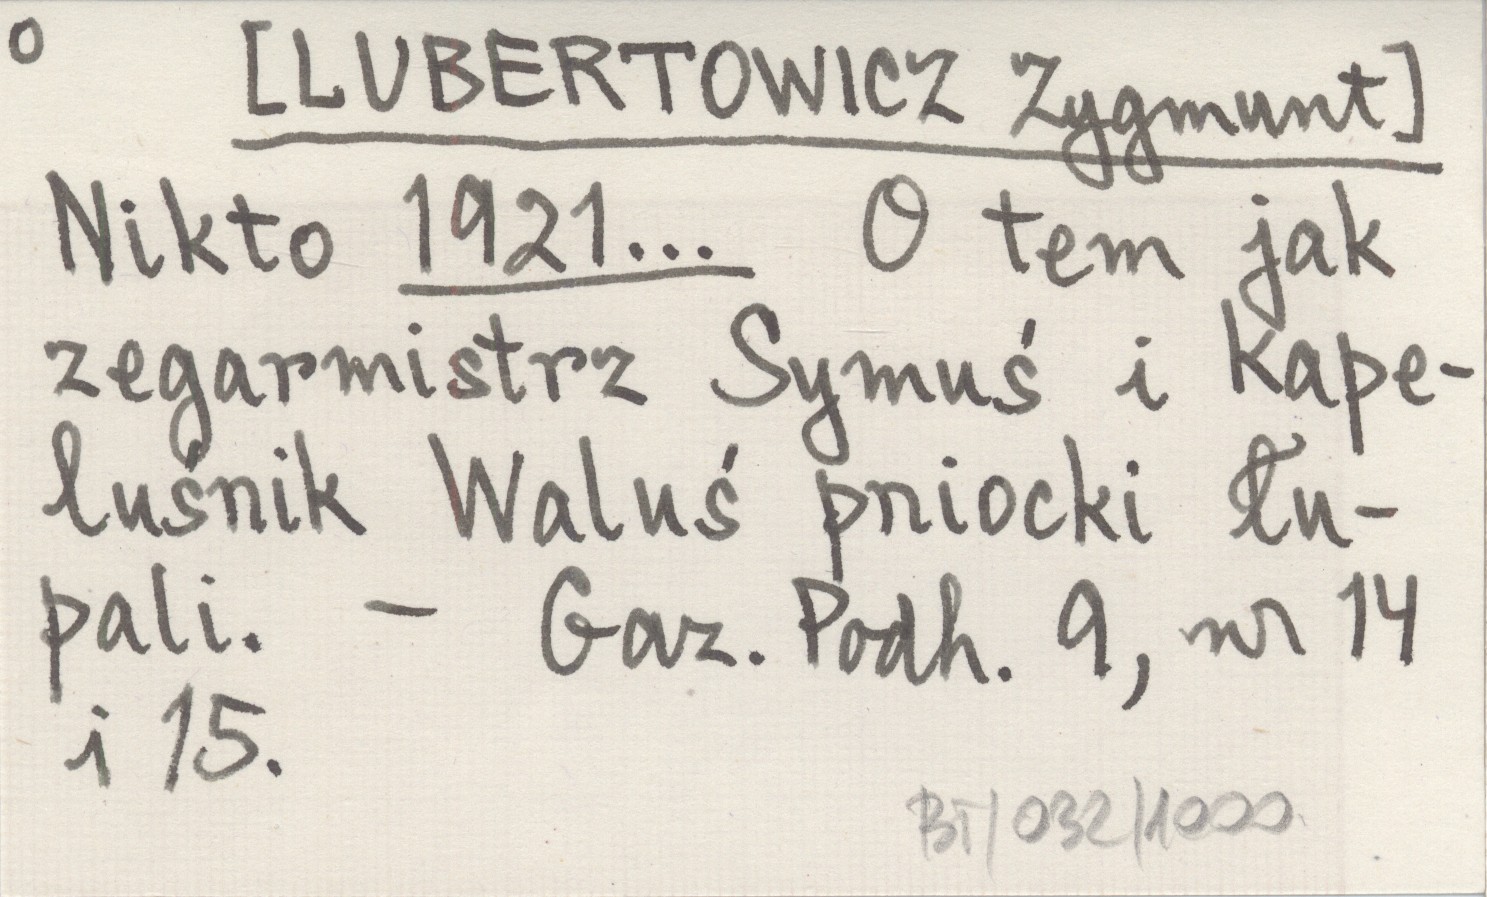 o [LUBERTOWICZ Zygmunt]
Nikto 1921... O tem jak
zegarmistrz Symuś i kape-
luśnik Waluś pniocki łu-
pali. - Gaz. Podh. 9, nr 14
i 15.
BT/032/1000